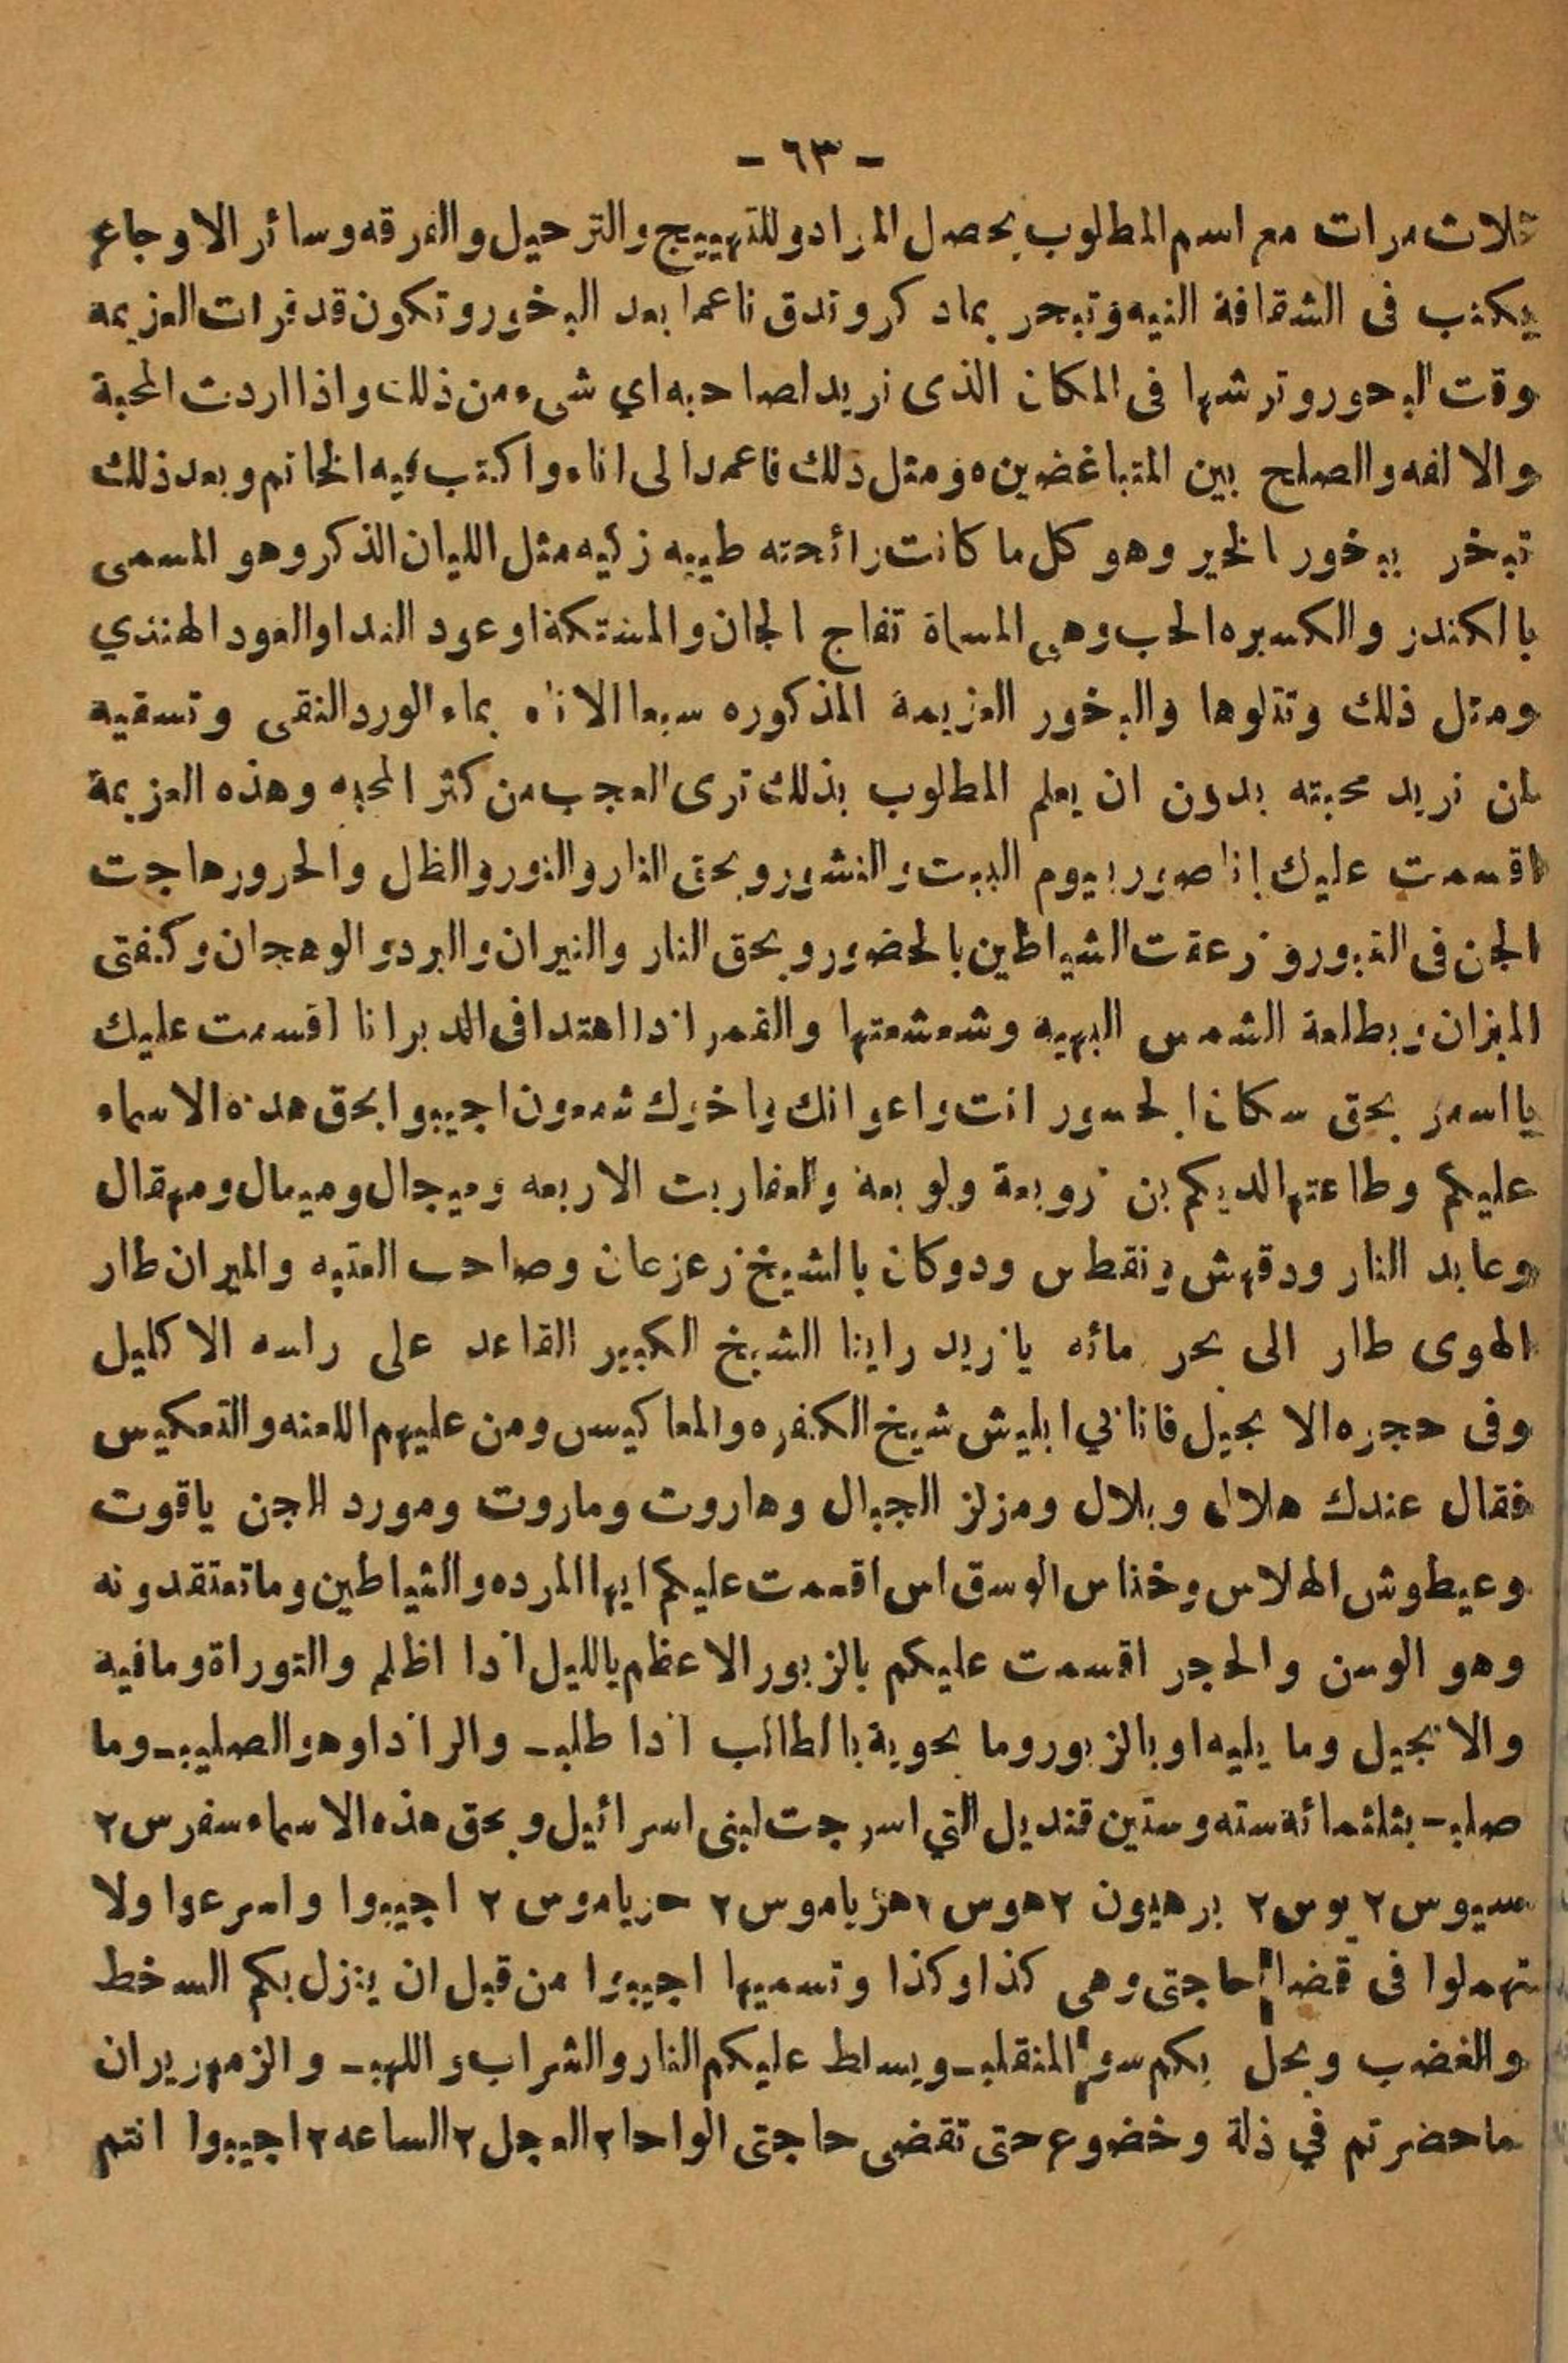 - ٦٣ -
ثلاث مرات مع اسم المطلوب يحصل المراد وللتهييج والترحيل والفرقه وسائر الاوجاع
يكتب فى الشقافة النيه وتبخر بماد كر وتدق ناعما بعد البخور وتكون قد قرات العزيمه
وقت البخور وترشها فى المكان الذى تريد لصاحبه اي شىء من ذلك واذا اردت المحبة
والالفه والصلح بين المتباغضين ومثل ذلك فاعمد الى اناء واكتب فيه الخاتم وبعد ذلك
تبخر ببخور الخير وهو كل ما كانت رائحته طيبه زكيه مثل اللبان الذكر وهو المسمى
بالكندر والكسبره الحب وهي المسماة تفاح الجان والمستكة او عود الند او العود الهندي
ومثل ذلك وتتلوها والبخور العزيمة المذكوره سبعا الاناء بماء الورد النقى وتسقيه
لمن تريد محبته بدون ان يعلم المطلوب بذلك ترى العجب من كثر المحبه وهذه العزيمة
اقسمت عليك يوم البعث والنشور وبحق النار والنور والظل والحرور هاجت
الجن فى القبور وزعقت الشياطين بالحضور وبحق النار والنيران والبرد والوهجان وكفتى
الميزان وبطلعة الشمس البهيه وشعشعتها والقمر اذا اهتدا فى الدبرانا اقسمت عليك
يا اسمر بحق سكان الجسور انت واعوانك واخوك شمعون اجيبوا بحق هده الاسماء
عليكم وطاعتها لديكم بن زوبعة ولوبعة والعفاريت الاربعه وميجال وميمال ومهقال
وعابد النار ودقهش ونقطس ودوكان بالشيخ زعزعان وصاحب العتبه والميران طار
الهوى طار الى بحر مائه يا زيد راينا الشيخ الكبير القاعد على راسه الاكليل
وفى حجره الانجيل ابليش شيخ الكفره والمعاكيس ومن عليهم اللعنه والتعكيس
فقال عندك هلال وبلال ومزلز الجبال وهاروت وماروت ومورد الجن ياقوت
وعيطوش الهلاس وخناس الوسق اس اقسمت عليكم ايها المرده والشياطين وما تعتقدونه
وهو الوسن والحجر اقسمت عليكم بالزبور الاعظم بالليل اذا اظلم والتوراة وما فيه
والانجيل وما يليه او بالزبور وما يحويه بالطالب اذا طلب والراذا وهو الصليب وما
صلب بثلثمائة سته وستين قنديل التي اسرجت لبنى اسرائيل وبحق هذه الاسماء سفرس ٢
سيوس ٢ يوس ٢ برهيون ٢ هوس ٢ هزياموس ٢ حزياموس ٢ اجيبوا واسرعوا ولا
تهملوا فى قضاء حاجتى وهى كذا وكذا وتسميها اجيبوا من قبل ان ينزل بكم السخط
والغضب ويحل بكم سوء المنقلب ويسلط عليكم النار والشراب واللهب والزمهرير ان
ما حضرتم في ذلة وخضوع حتى تقضى حاجتى الواحا ٢ العجل ٢ الساعه ٢ اجيبوا انتم